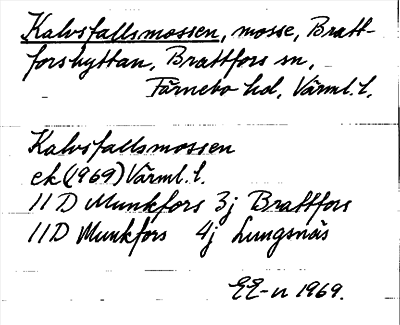 Kalvsfallsmossen, mosse, Bratt-
forshyttan, Brattfors sn,
Färnebo hd, Värml. l.
Kalvsfallsmossen
ek (1969) Värml. l.
11 D Munkfors 3j Brattfors
11 D Munkfors 4j Lungsnäs
EE-n 1969.